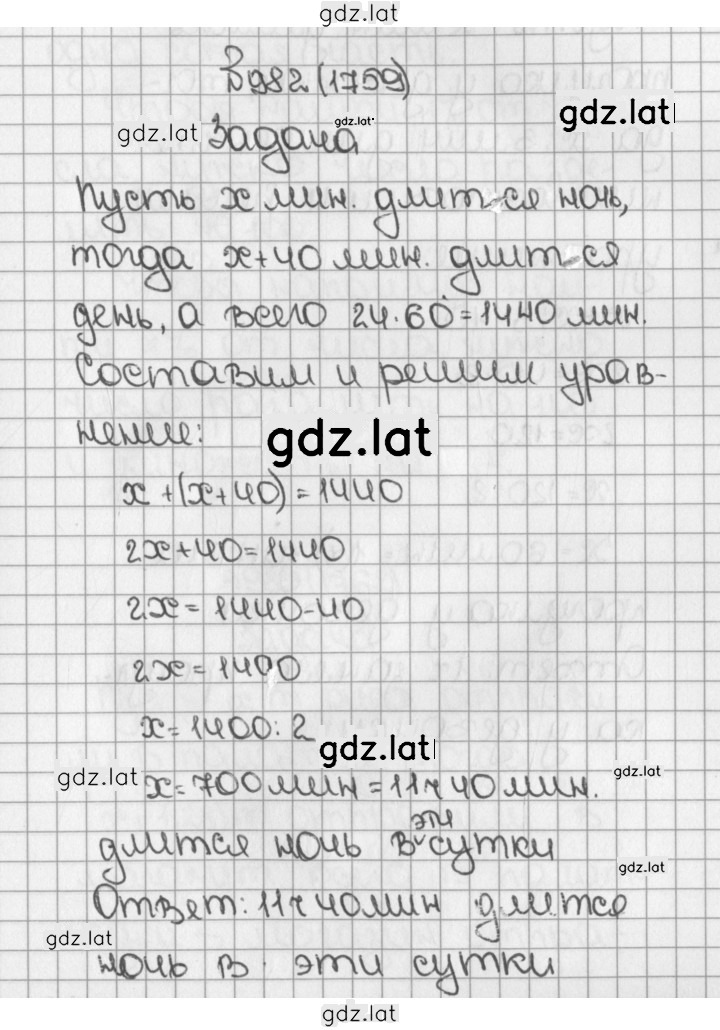 gdz.lat
№982 (1759)
gdz.lat
gdz.lat
gdz.lat
Задача
Пусть x мин. длится ночь,
тогда x+40 мин. длится
день, а всего 24·60=1440 мин.
Составим и решим урав-
нение:
gdz.lat
x+(x+40)=1440
2x+40=1440
2x=1440-40
2x=1400
x=1400:2
gdz.lat
gdz.lat
gdz.lat
x=700мин=11ч 40 мин.
длится ночь в эти сутки
gdz.lat
Ответ: 11ч 40мин длится
gdz.lat
ночь в эти сутки
gdz.lat